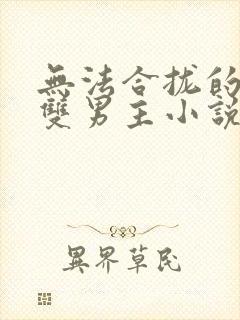 無法合拢的
雙男主小説
異界草民